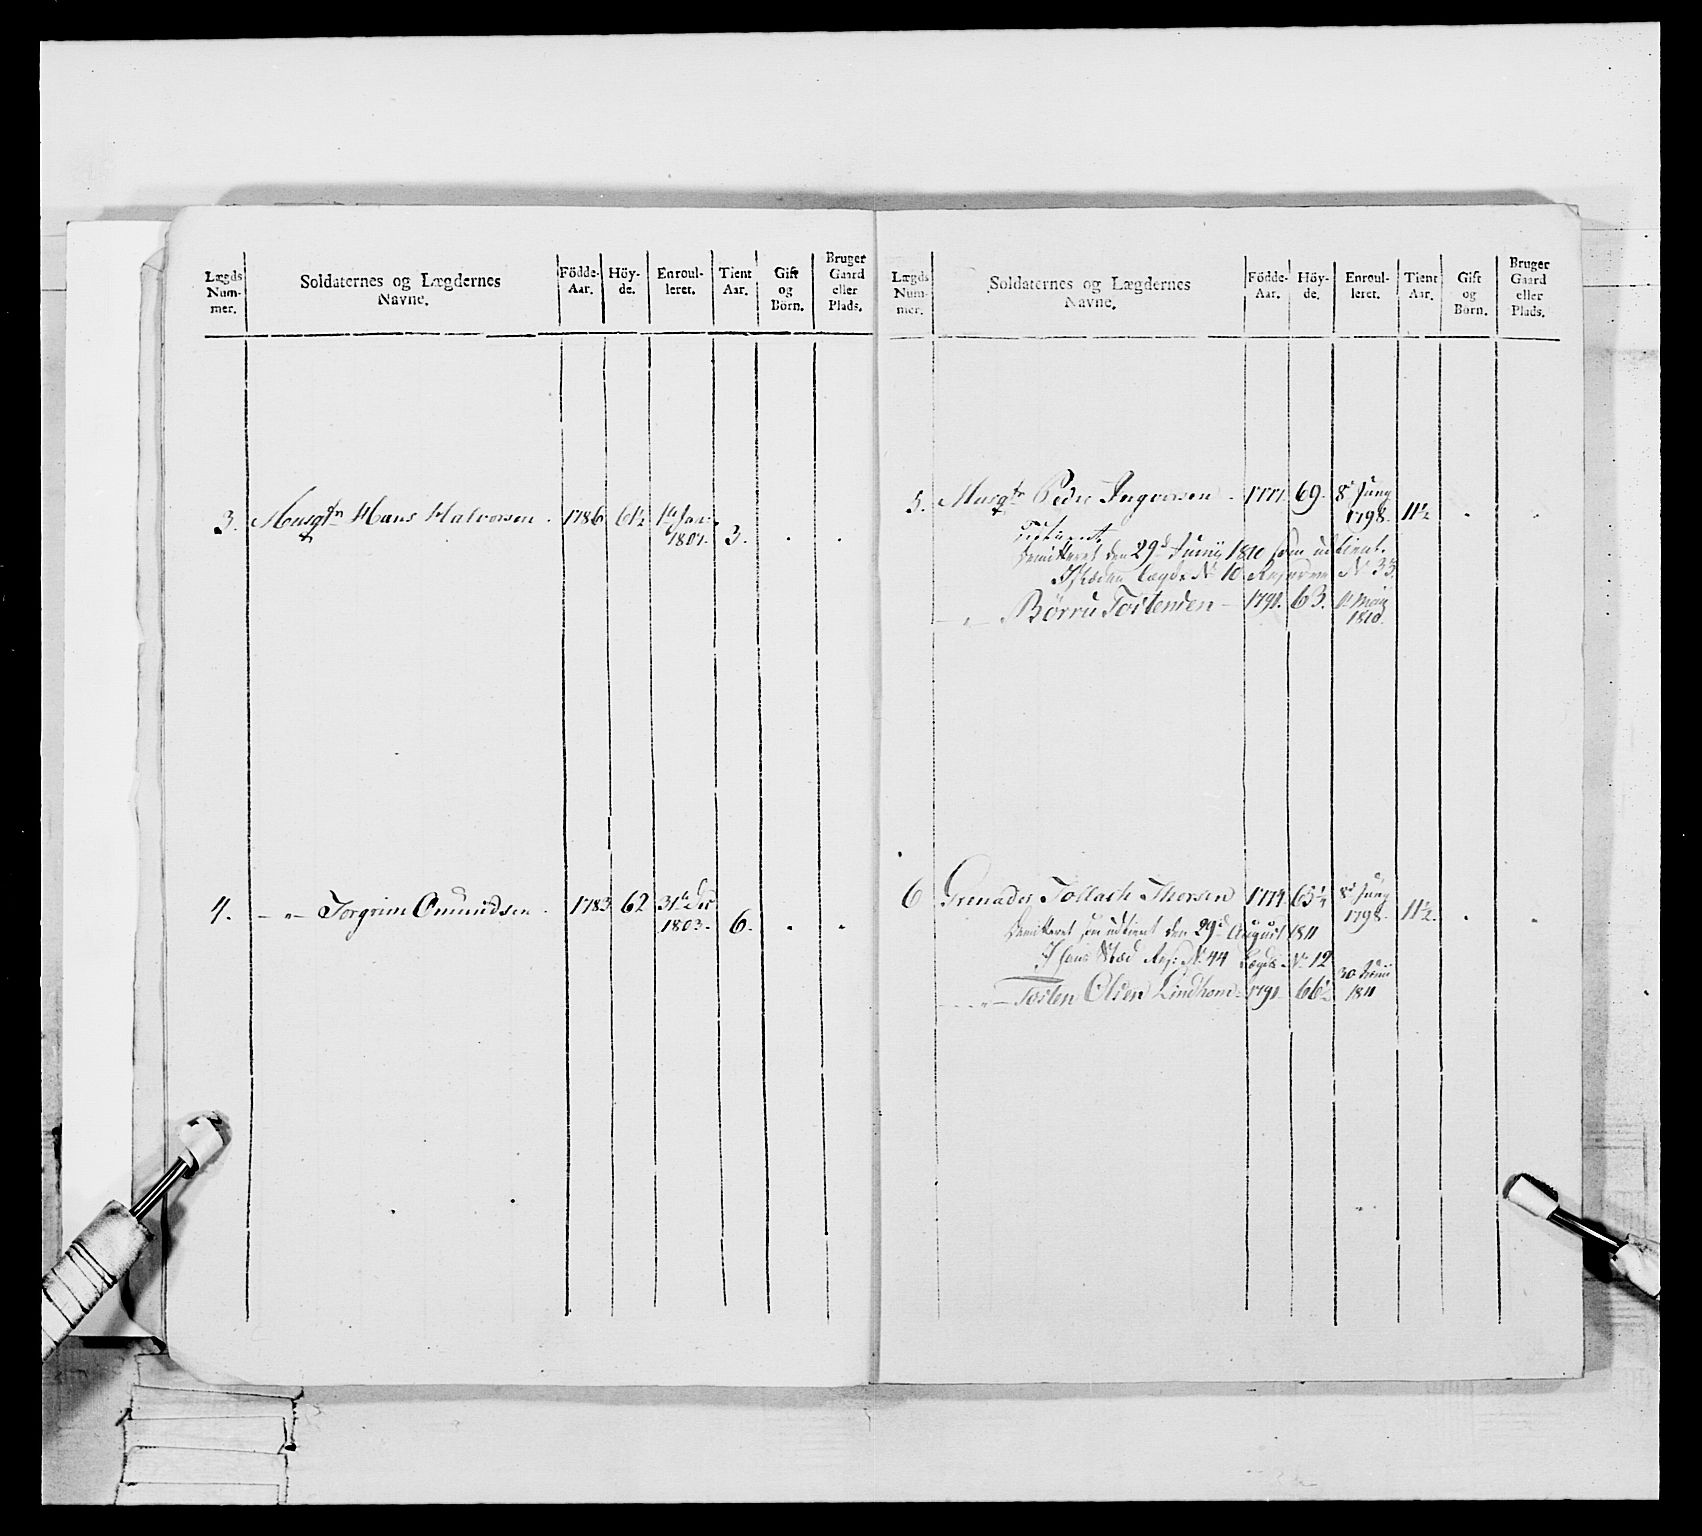 Lægds Num- mer.
Soldaternes og Lægdernes Navne.
Födde- Aar.
Höy- de.
Enroul- leret.
Tient Aar.
Gift og Börn.
Bruger Gaard eller Plads.
3. Musqtr Hans Halvorsen . 1786 61½ 1te Jan. 1807. 3. . .
4. — " — Torgrim Omundsen . 1783 62 31te Dec 1803. 6. . .
Lægds Num- mer.
Soldaternes og Lægdernes Navne.
Födde- Aar.
Höy- de.
Enroul- leret.
Tient Aar.
Gift og Börn.
Bruger Gaard eller Plads.
5. Musqtr Peder Ingvorsen - 1777. 69. 8de Juny 1798. 11½ . .
Demitteret den 29d Junij 1810 som udtient.
I Steden Lægds No 10 Reserven No 33
— " — Börru Tostensen — 1791. 63. 1810.
6 Grenader Tollach Thorsen 1774. 65¼ 8de Juny 1798. 11½. . .
Demitteret som udtient den 29d August 1811
I hans Stæd Res: No 44 Lægds No 12
— " — Tosten Olsen Lindhom - 1791 66½ 30 1811